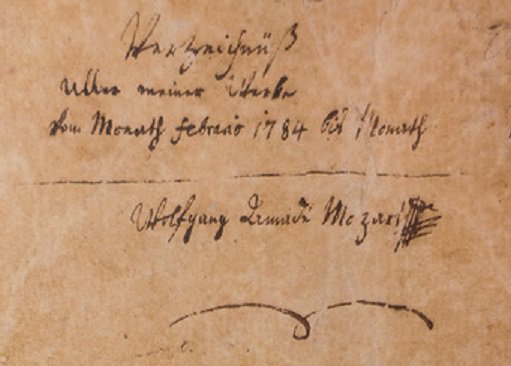 Verzeichnüß
aller meiner Werke
Vom Monath febraio 1784 bis Monath
Wolfgang Amadè Mozart